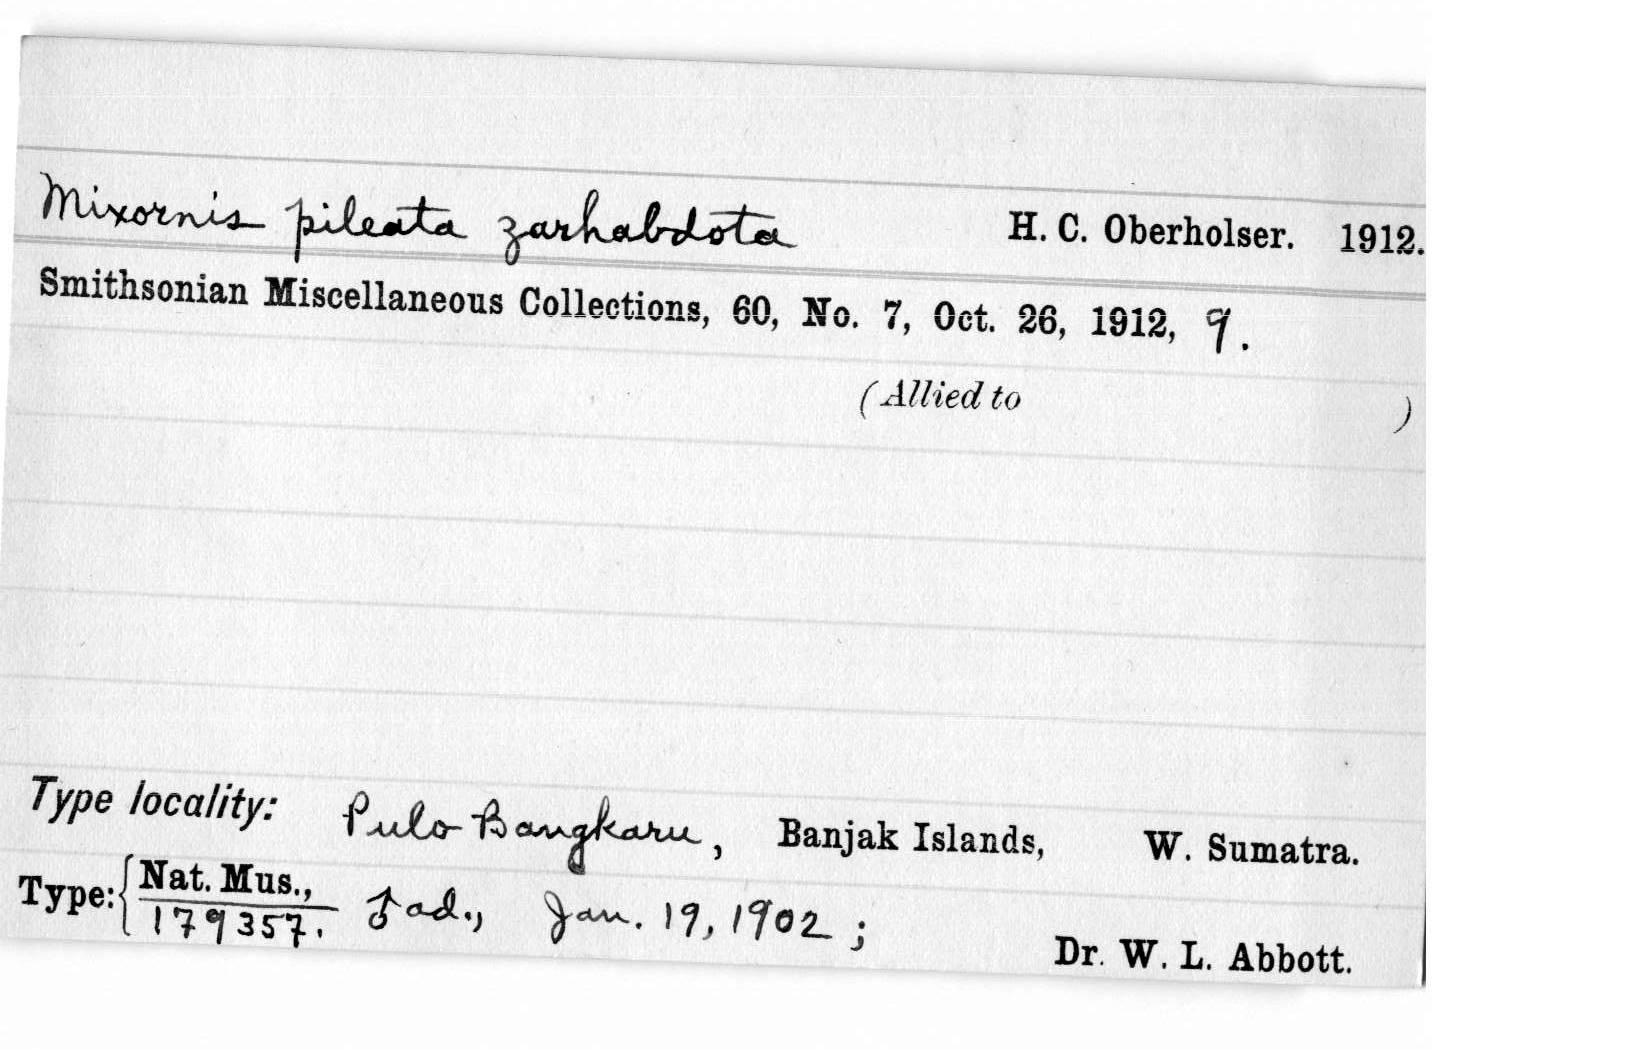 Mixornis pileata zarhabdota H. C. Oberholser. 1912.
Smithsonian Miscellaneous Collections, 60, No. 7, Oct. 26, 1912, 9.
(Allied to )
Type locality: Pulo Bangkaru, Banjak Islands, W. Sumatra.
Type: { Nat. Mus.,
179357. ♂ ad., Jan. 19, 1902 ;
Dr. W. L. Abbott.